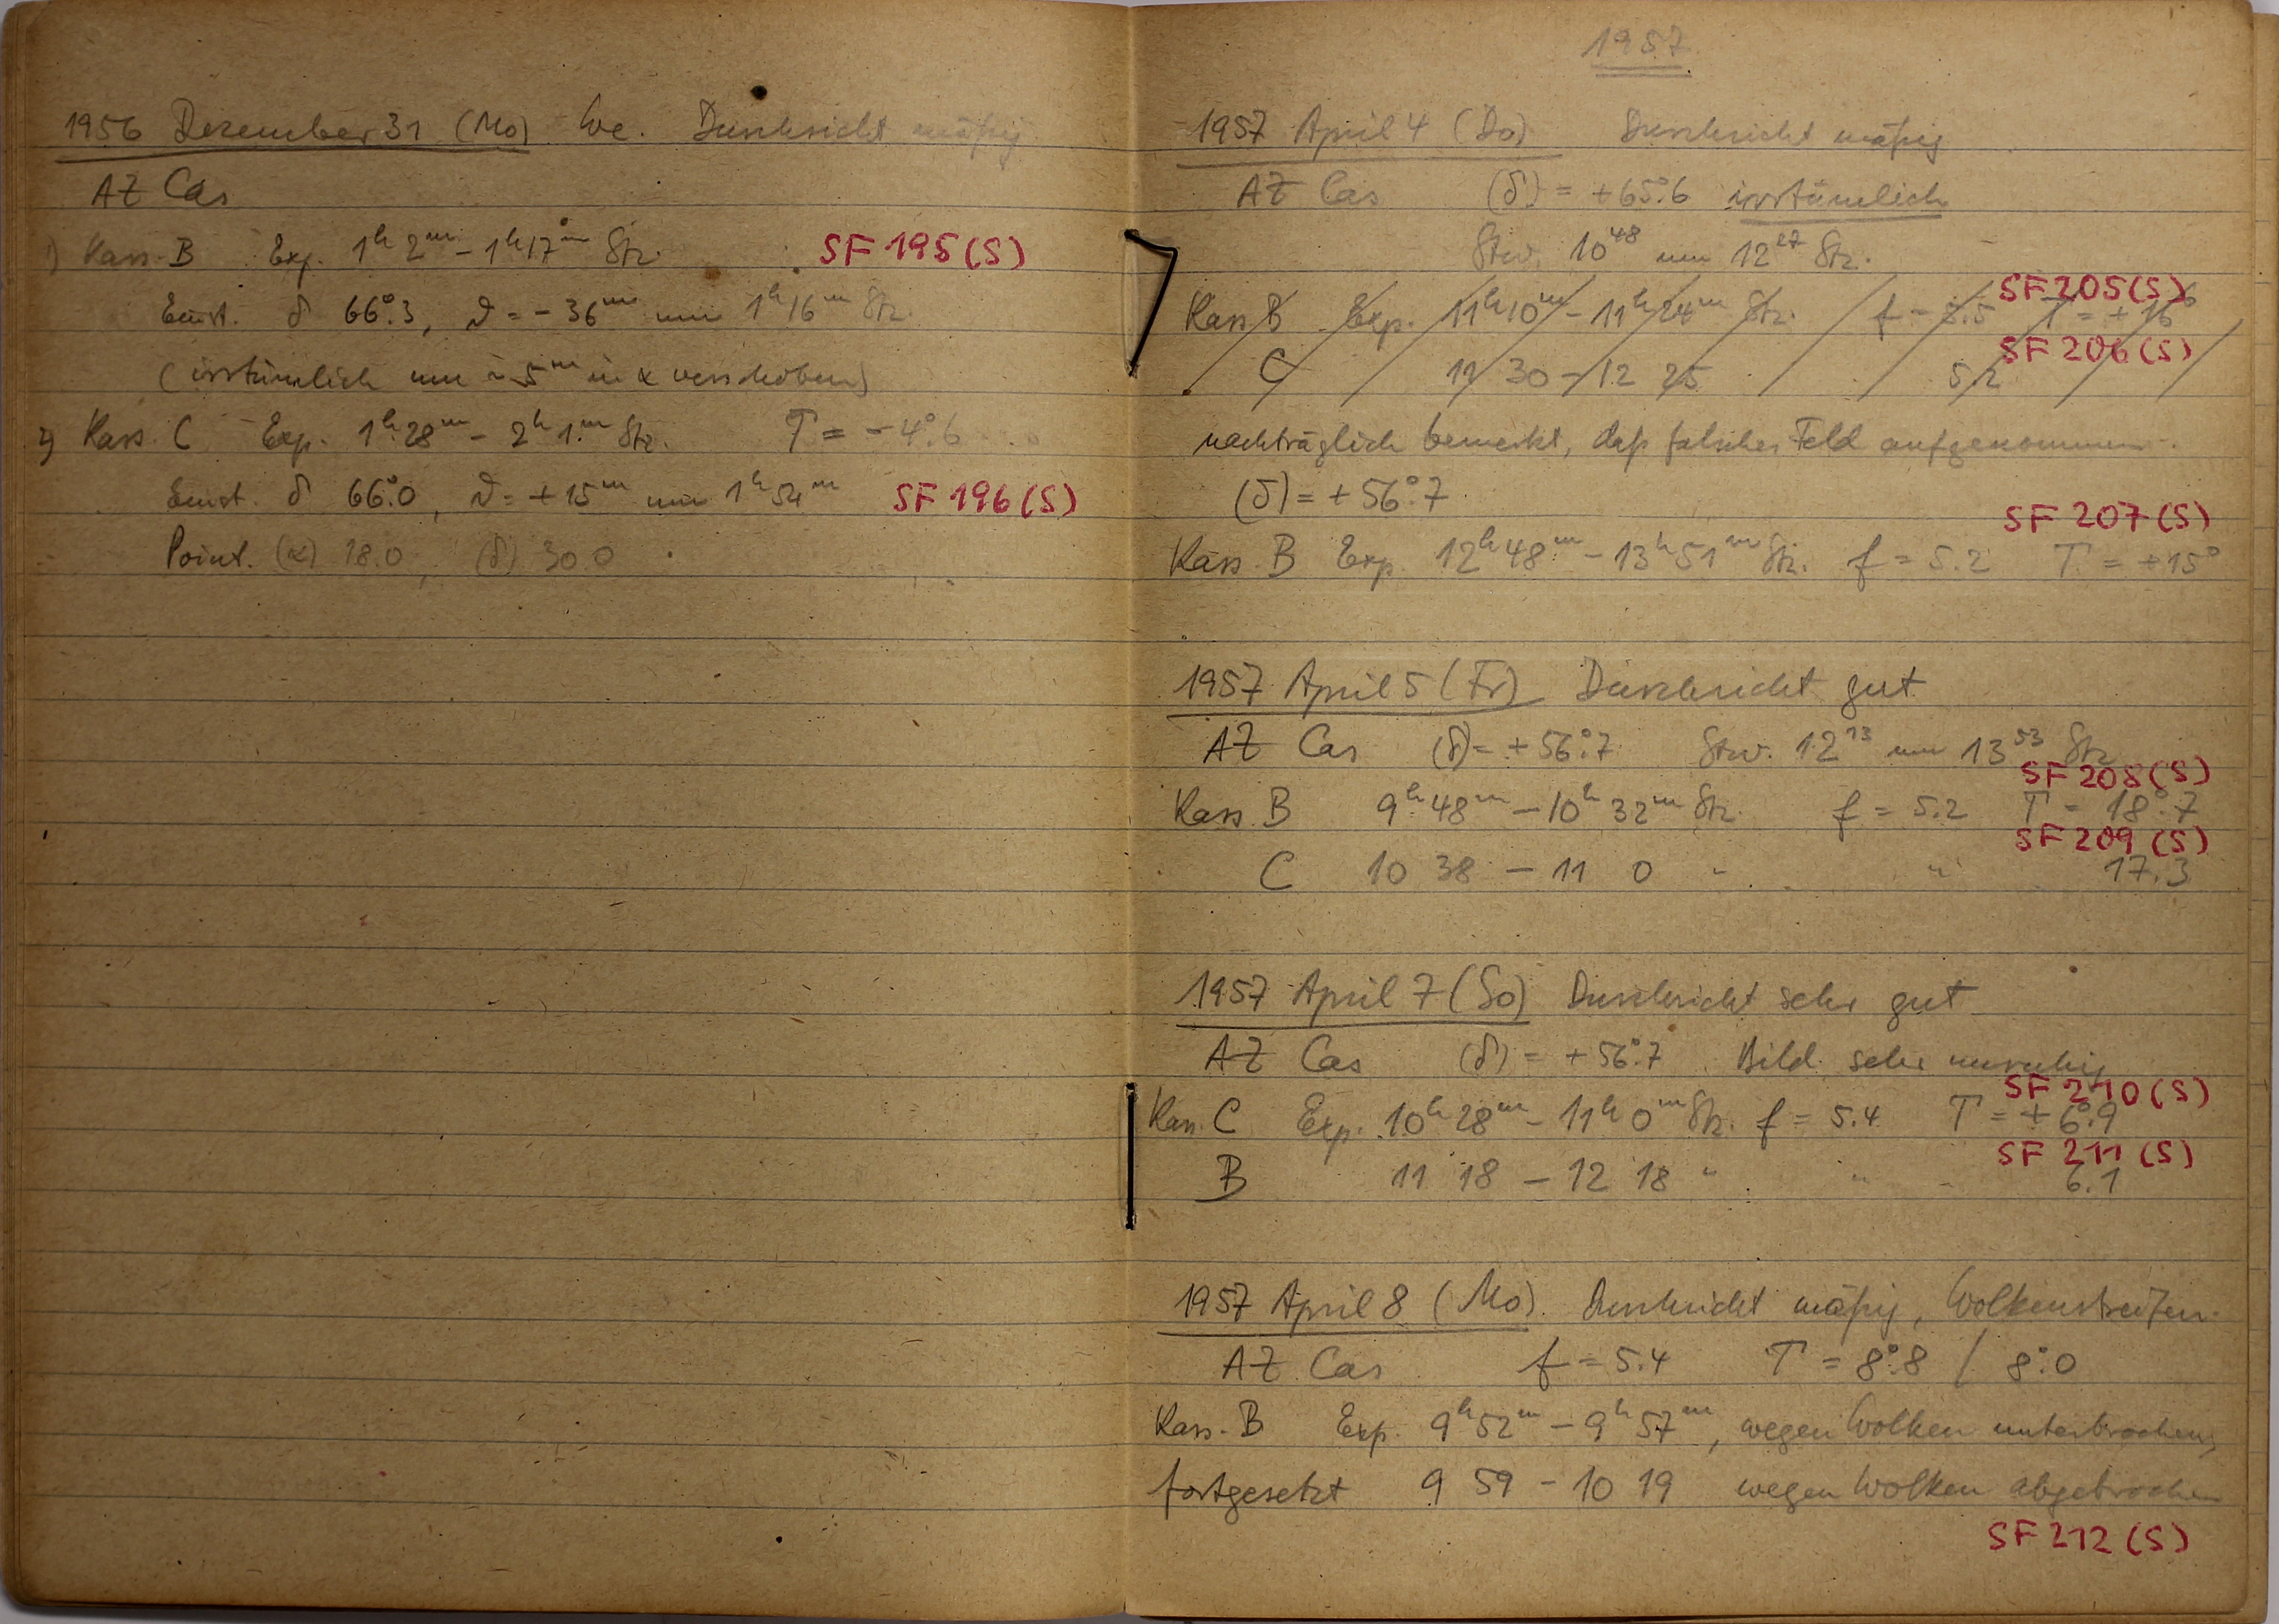 1956 Dezember 31 (Mo) We. Durchsicht mäßig
AZ Cas
1) Kass. B Exp. 1h 2m – 1h 17m Stz. SF 195 (S)
Einst. δ 66°.3, ϑ = – 36m um 1h 16m Stz.
(irrtümlich um ~ 5m in α verschoben)
2) Kass. C Exp. 1h 28m – 2h 1m Stz. T = – 4°.6
Einst. δ 66°.0, ϑ = + 15m um 1h 54m SF 196 (S)
Point. (α) 18.0, (δ) 30.0
1957
1957 April 4 (Do) Durchsicht mäßig
AZ Cas (δ) = + 65°.6 irrtümlich
Stw. 10 48 um 12 27 Stz.
SF 205 (S)
Kass B Exp. 11h 10m – 11h 24m Stz. f = 5.5 T = + 16°
SF 206 (S)
C 11 30 – 12 25 5.2
nachträglich bemerkt, daß falsches Feld aufgenommen.
(δ) = + 56°.7
SF 207 (S)
Kass. B Exp. 12h 48m – 13h 51m Stz. f = 5.2 T = + 15°
1957 April 5 (Fr) Durchsicht gut
AZ Cas (δ) = + 56°.7 Stw. 12 13 um 13 53 Stz
SF 208 (S)
Kass. B 9h 48m – 10h 32m Stz. f = 5.2 T = 18°.7
SF 209 (S)
C 10 38 – 11 0 " " 17.3
1957 April 7 (So) Durchsicht sehr gut
AZ Cas (δ) = + 56°.7 Bild sehr unruhig
SF 210 (S)
Kass. C Exp. 10h 28m – 11h 0m Stz. f = 5.4 T = + 6°.9
SF 211 (S)
B 11 18 – 12 18 " " 6.1
1957 April 8 (Mo). Durchsicht mäßig, Wolkenstreifen.
AZ Cas f = 5.4 T = 8°.8 / 8°.0
Kass. B Exp. 9h 52m – 9h 57m, wegen Wolken unterbrochen,
fortgesetzt 9 59 – 10 19 wegen Wolken abgebrochen
SF 212 (S)